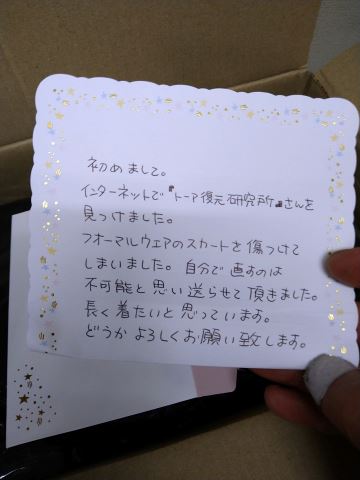 初めまして。
インターネットで『トーア復元研究所』さんを
見つけました。
フォーマルウェアのスカートを傷つけて
しまいました。自分で直すのは
不可能と思い送らせて頂きました。
長く着たいと思っています。
どうかよろしくお願い致します。